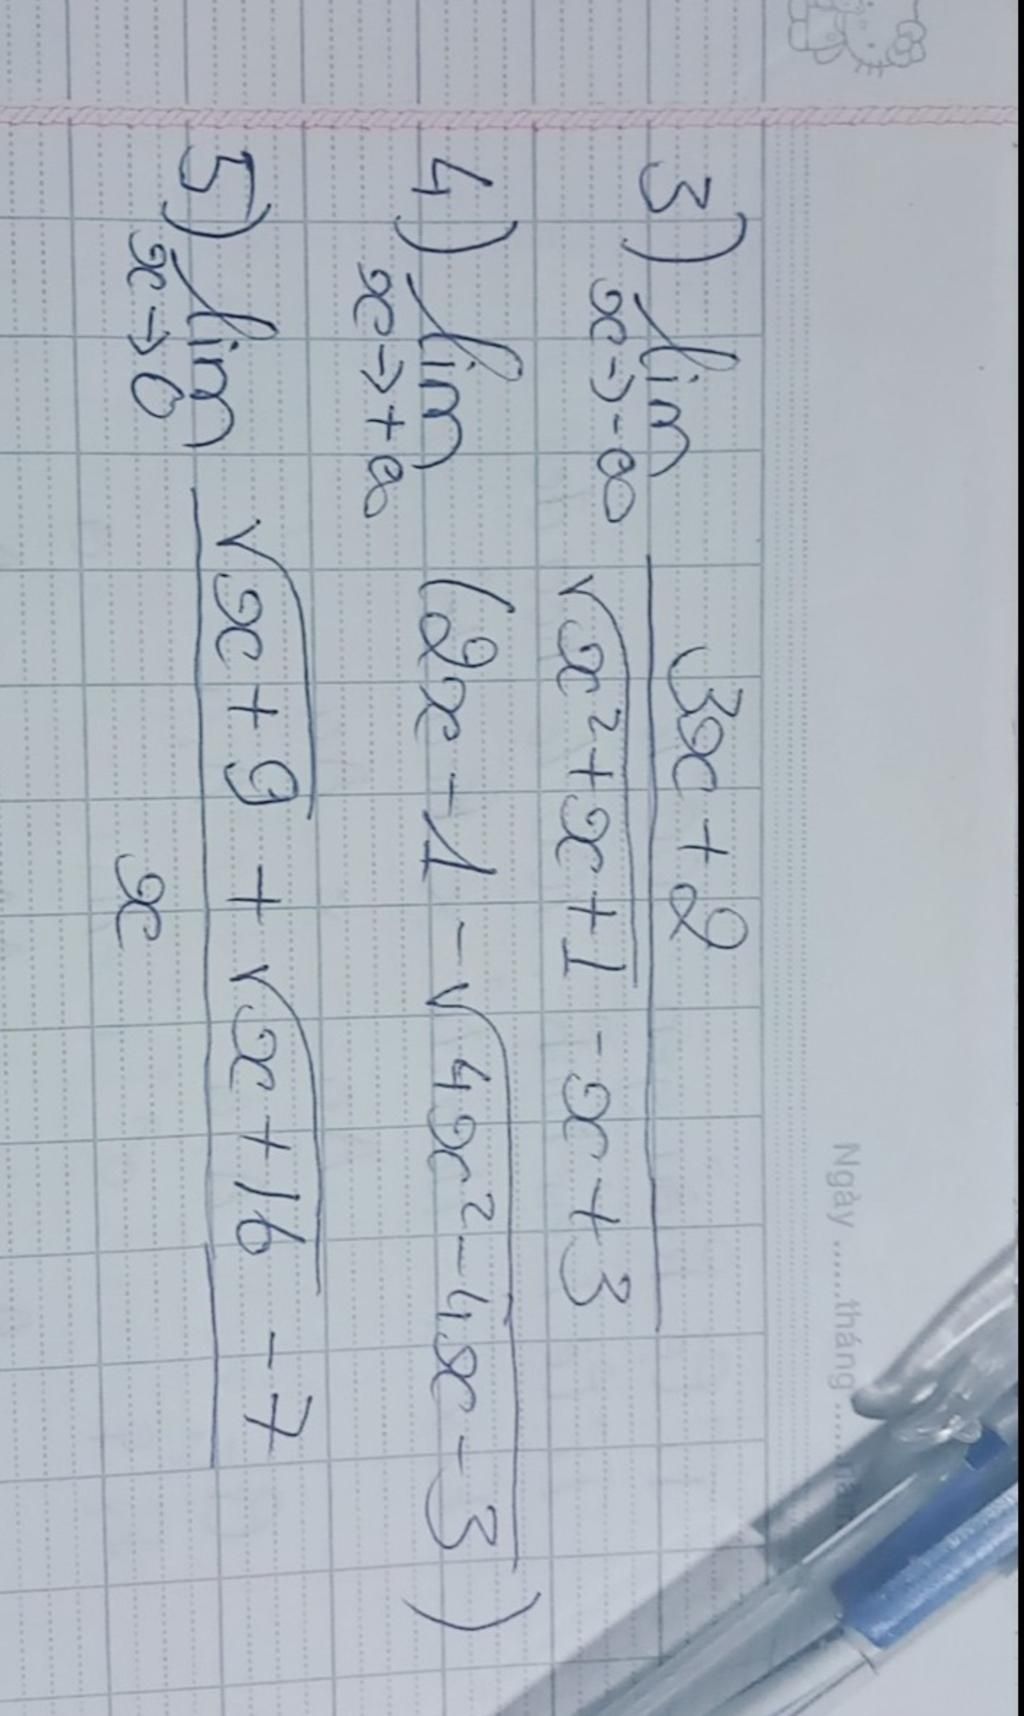 Ngày ..... tháng
3) lim x→-∞ (3x+2)/(√(x²+x+1) -x+3)
4) lim x→+∞ (2x-1-√(4x²-4x-3))
5) lim x→0 (√(x+9) + √(x+16) -7)/x